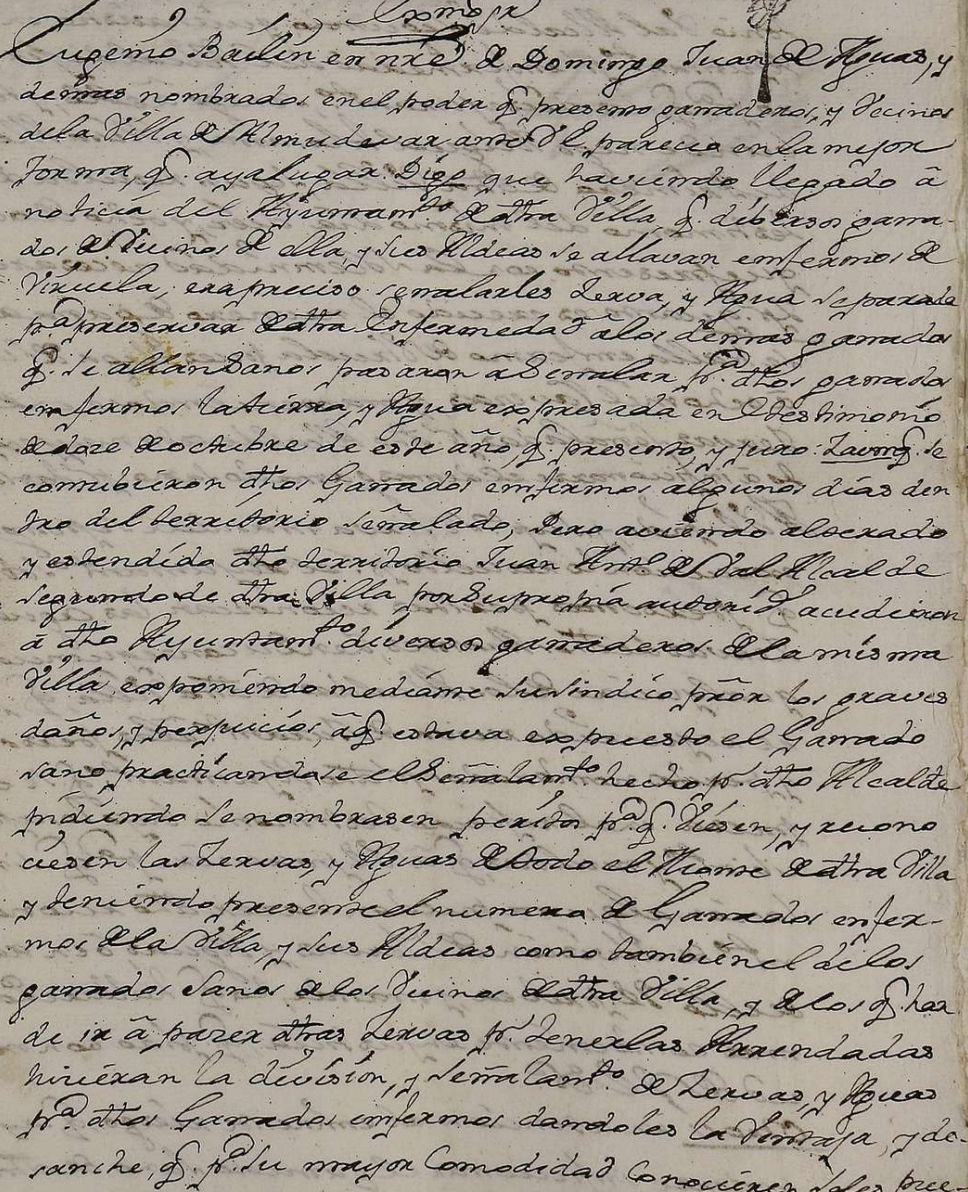 Exmo Sr
Eugenio Bailin en nre. de Domingo Juan de Aguas, y
demas nombrados en el poder q. presento ganaderos, y Vecinos
dela Villa de Almudevar ante V.E. parezco en la mejor
forma, q. aya lugar. Digo que haviendo llegado â
noticia del Ayuntamto. de dha Villa, q. dibersos gana-
dos de Vecinos de ella, y sus Aldeas se allavan enfermos de
Viruela, era preciso senalarles Yerva, y Agua separada
pa. preservar de dha Enfermedad â los demas ganados
q. se allan Sanos pasaron â Senalar pa. dhos ganados
enfermos la tierra, y Agua expresada en el testimonio
de doze de octubre de este año q. presento, y juro. Y aunq. se
contubieron dhos Ganados enfermos algunos dias den
tro del territorio señalado, pero aviendo alterado
y estendido dho territorio Juan Anto. de Val Alcalde
segundo de dha Villa por Su propia autorid. acudieron
â dho Ayuntamto. diversos ganaderos de la misma
Villa exponiendo mediante su sindico prôr los graves
daños, y perjuicios, âq. estava expuesto el Ganado
sano practicandose el Señalamto. hecho pr. dho Alcalde
pidiendo se nombrasen peritos pa. q. Viesen, y recono
ciesen las Yervas, y Aguas de todo el Monte de dha Villa
y teniendo presente el numero de Ganados enfer-
mos de la Villa, y sus Aldeas como tambien el de los
ganados Sanos de los Vecinos de dha Villa, y de los q. han
de ir â pazer dhas Yervas pr. tenerlas Arrendadas
hicieran la división, y señalamto. de Yervas, y Aguas
pa. dhos Ganados enfermos dandoles la Ventaja, y de-
sanche, q. pa. su mayor Comodidad Conocieren seles pue-